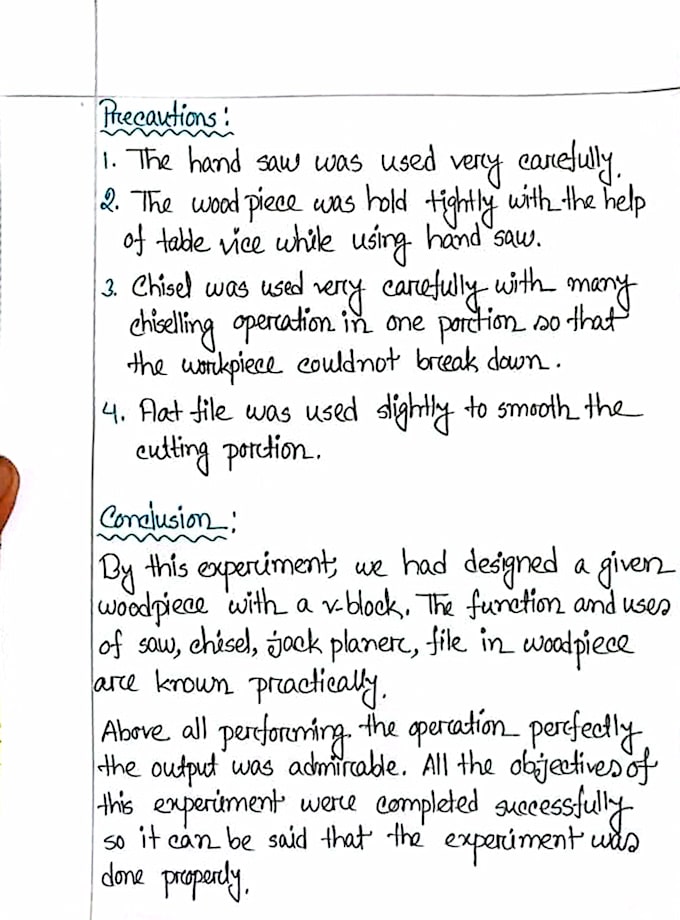 Precautions:
1. The hand saw was used very carefully.
2. The wood piece was hold tightly with the help
of table vice while using hand saw.
3. Chisel was used very carefully with many
chiselling operation in one portion so that
the workpiece couldnot break down.
4. Flat file was used slightly to smooth the
cutting portion.
Conclusion:
By this experiment, we had designed a given
woodpiece with a v-block. The function and uses
of saw, chisel, jack planer, file in woodpiece
are known practically.
Above all performing. the operation perfectly
the output was admirable. All the objectives of
this experiment were completed successfully
so it can be said that the experiment was
done properly.